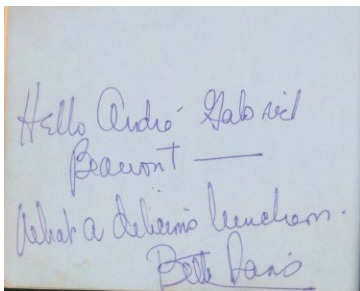 Hello André Gabriel
Beaumont —
What a delicious luncheon.
Bette Davis